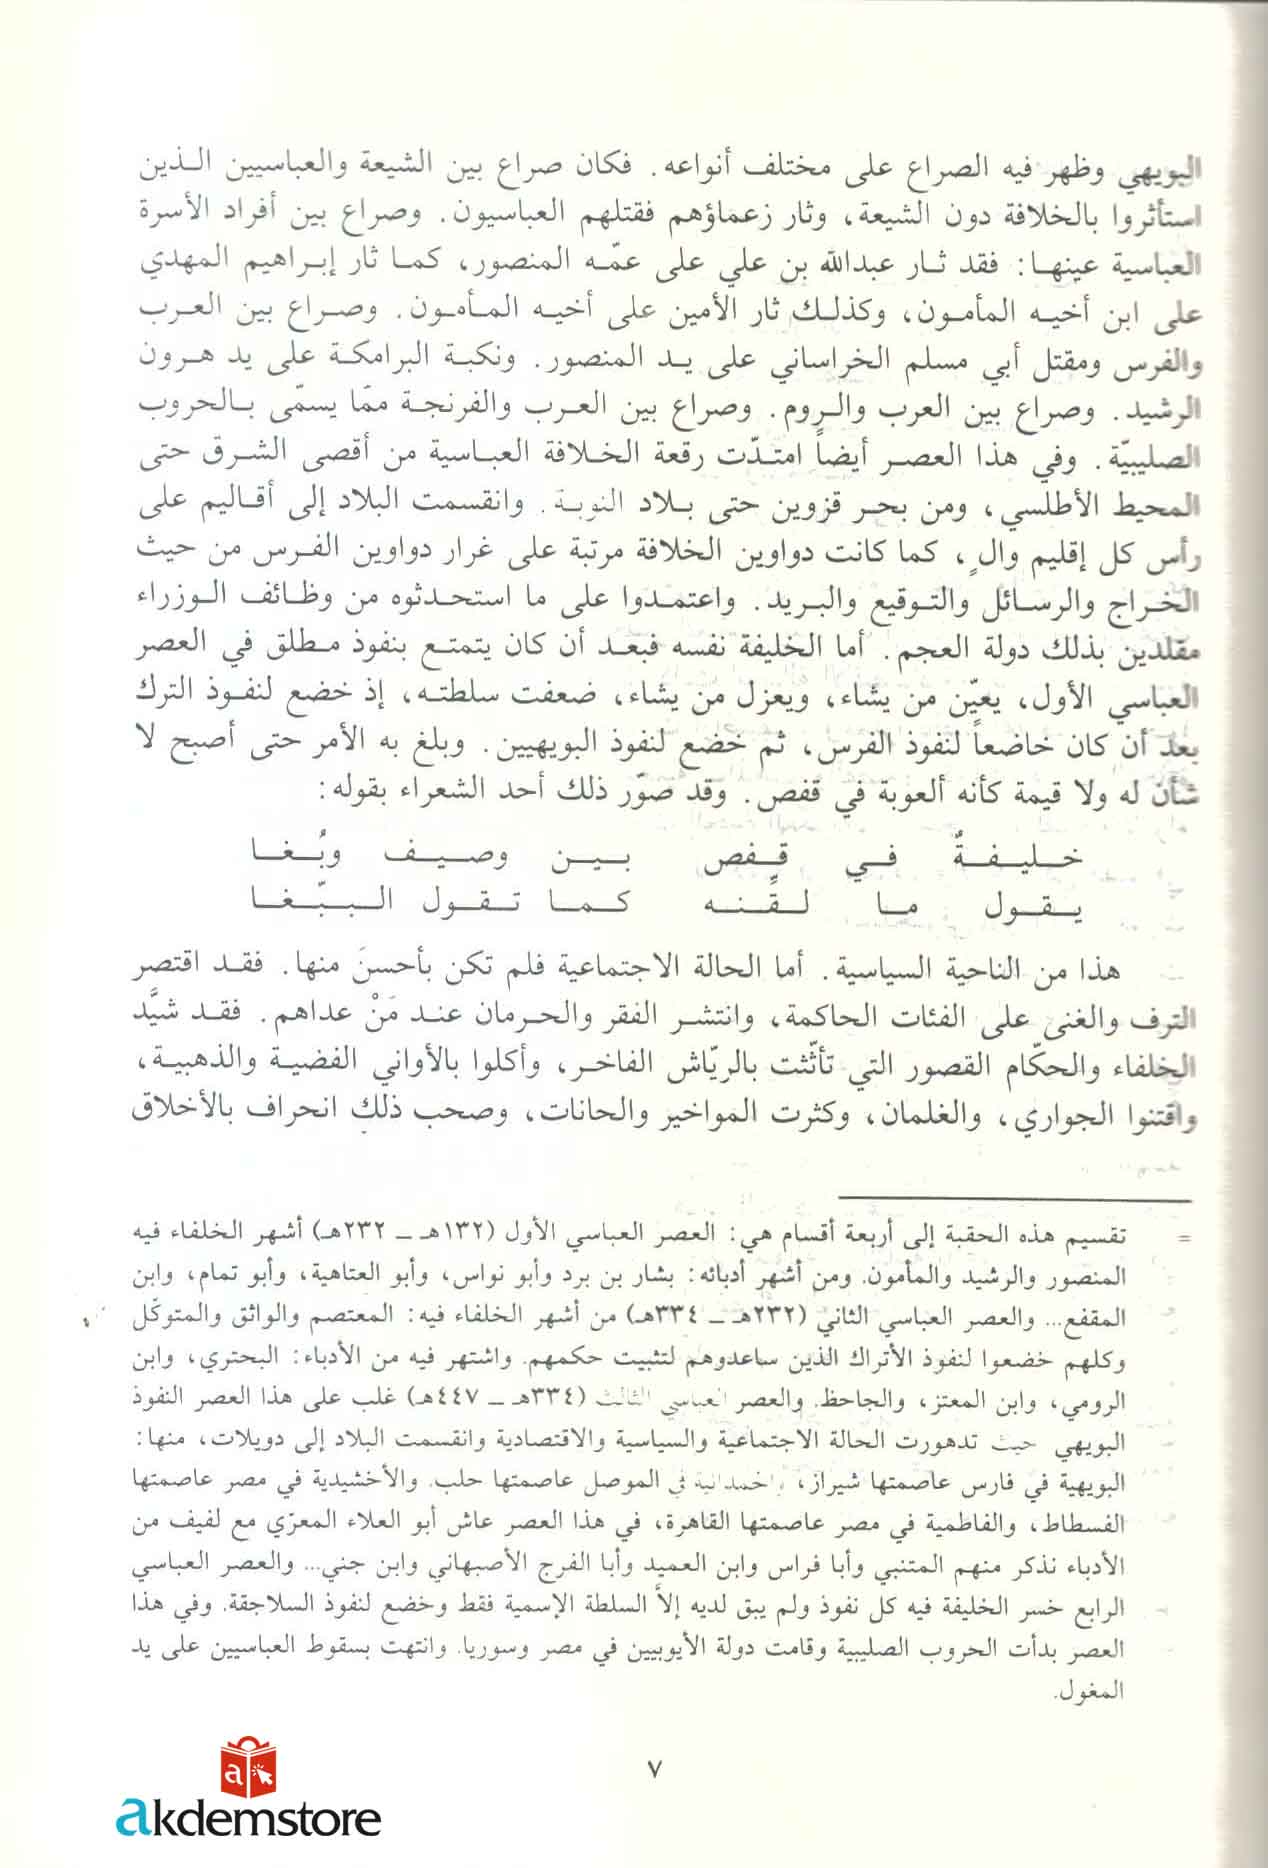 البويهي وظهر فيه الصراع على مختلف أنواعه. فكان صراع بين الشيعة والعباسيين الذين
استأثروا بالخلافة دون الشيعة، وثار زعماؤهم فقتلهم العباسيون. وصراع بين أفراد الأسرة
العباسية عينها: فقد ثار عبدالله بن علي على عمّه المنصور، كما ثار إبراهيم المهدي
على ابن أخيه المأمون، وكذلك ثار الأمين على أخيه المأمون. وصراع بين العرب
والفرس ومقتل أبي مسلم الخراساني على يد المنصور. ونكبة البرامكة على يد هرون
الرشيد. وصراع بين العرب والروم. وصراع بين العرب والفرنجة ممّا يسمّى بالحروب
الصليبيّة. وفي هذا العصر أيضاً امتدّت رقعة الخلافة العباسية من أقصى الشرق حتى
المحيط الأطلسي، ومن بحر قزوين حتى بلاد النوبة. وانقسمت البلاد إلى أقاليم على
رأس كل إقليم والٍ، كما كانت دواوين الخلافة مرتبة على غرار دواوين الفرس من حيث
الخراج والرسائل والتوقيع والبريد. واعتمدوا على ما استحدثوه من وظائف الوزراء
مقلدين بذلك دولة العجم. أما الخليفة نفسه فبعد أن كان يتمتع بنفوذ مطلق في العصر
العباسي الأول، يعيّن من يشاء، ويعزل من يشاء، ضعفت سلطته، إذ خضع لنفوذ الترك
بعد أن كان خاضعاً لنفوذ الفرس، ثم خضع لنفوذ البويهيين. وبلغ به الأمر حتى أصبح لا
شأن له ولا قيمة كأنه ألعوبة في قفص. وقد صوّر ذلك أحد الشعراء بقوله:
خليفةٌ في قفصٍ بين وصيف وبُغا
يقول ما لقّنه كما تقول الببّغا
هذا من الناحية السياسية. أما الحالة الاجتماعية فلم تكن بأحسنَ منها. فقد اقتصر
الترف والغنى على الفئات الحاكمة، وانتشر الفقر والحرمان عند مَنْ عداهم. فقد شيَّد
الخلفاء والحكّام القصور التي تأثّثت بالريّاش الفاخر، وأكلوا بالأواني الفضية والذهبية،
واقتنوا الجواري، والغلمان، وكثرت المواخير والحانات، وصحب ذلك انحراف بالأخلاق
= تقسيم هذه الحقبة إلى أربعة أقسام هي: العصر العباسي الأول (١٣٢هـ ـ ٢٣٢هـ) أشهر الخلفاء فيه
المنصور والرشيد والمأمون. ومن أشهر أدبائه: بشار بن برد وأبو نواس، وأبو العتاهية، وأبو تمام، وابن
المقفع... والعصر العباسي الثاني (٢٣٢هـ ـ ٣٣٤هـ) من أشهر الخلفاء فيه: المعتصم والواثق والمتوكّل
وكلهم خضعوا لنفوذ الأتراك الذين ساعدوهم لتثبيت حكمهم. واشتهر فيه من الأدباء: البحتري، وابن
الرومي، وابن المعتز، والجاحظ. والعصر العباسي الثالث (٣٣٤هـ ـ ٤٤٧هـ) غلب على هذا العصر النفوذ
البويهي حيث تدهورت الحالة الاجتماعية والسياسية والاقتصادية وانقسمت البلاد إلى دويلات، منها:
البويهية في فارس عاصمتها شيراز، والحمدانية في الموصل عاصمتها حلب. والأخشيدية في مصر عاصمتها
الفسطاط، والفاطمية في مصر عاصمتها القاهرة، في هذا العصر عاش أبو العلاء المعرّي مع لفيف من
الأدباء نذكر منهم المتنبي وأبا فراس وابن العميد وأبا الفرج الأصبهاني وابن جني... والعصر العباسي
الرابع خسر الخليفة فيه كل نفوذ ولم يبق لديه إلاّ السلطة الإسمية فقط وخضع لنفوذ السلاجقة. وفي هذا
العصر بدأت الحروب الصليبية وقامت دولة الأيوبيين في مصر وسوريا. وانتهت بسقوط العباسيين على يد
المغول.
٧
a
akdemstore